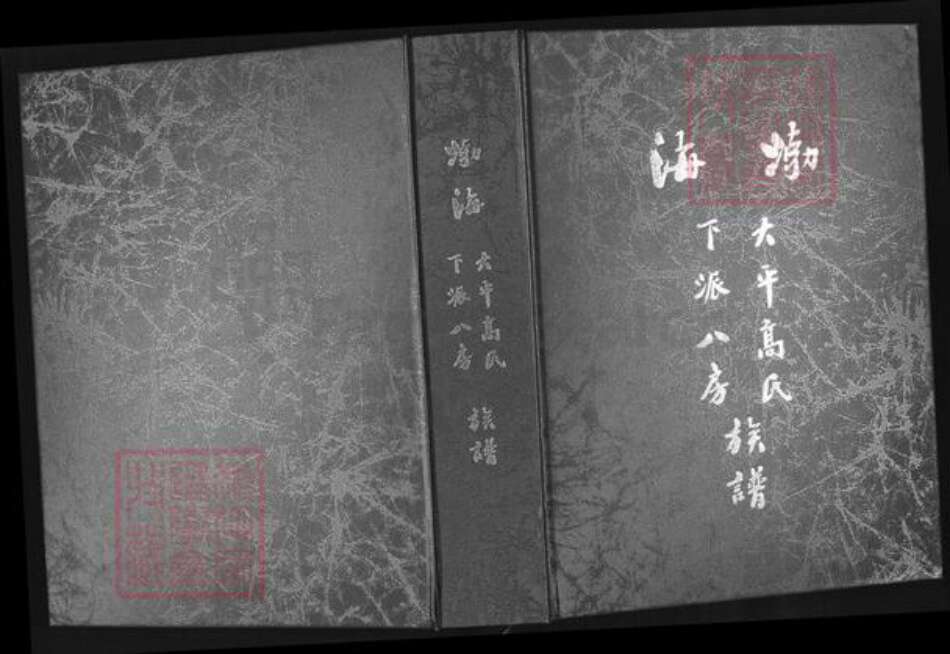 渤海
大平高氏
下派八房
族譜
渤海
大平高氏
下派八房
族譜